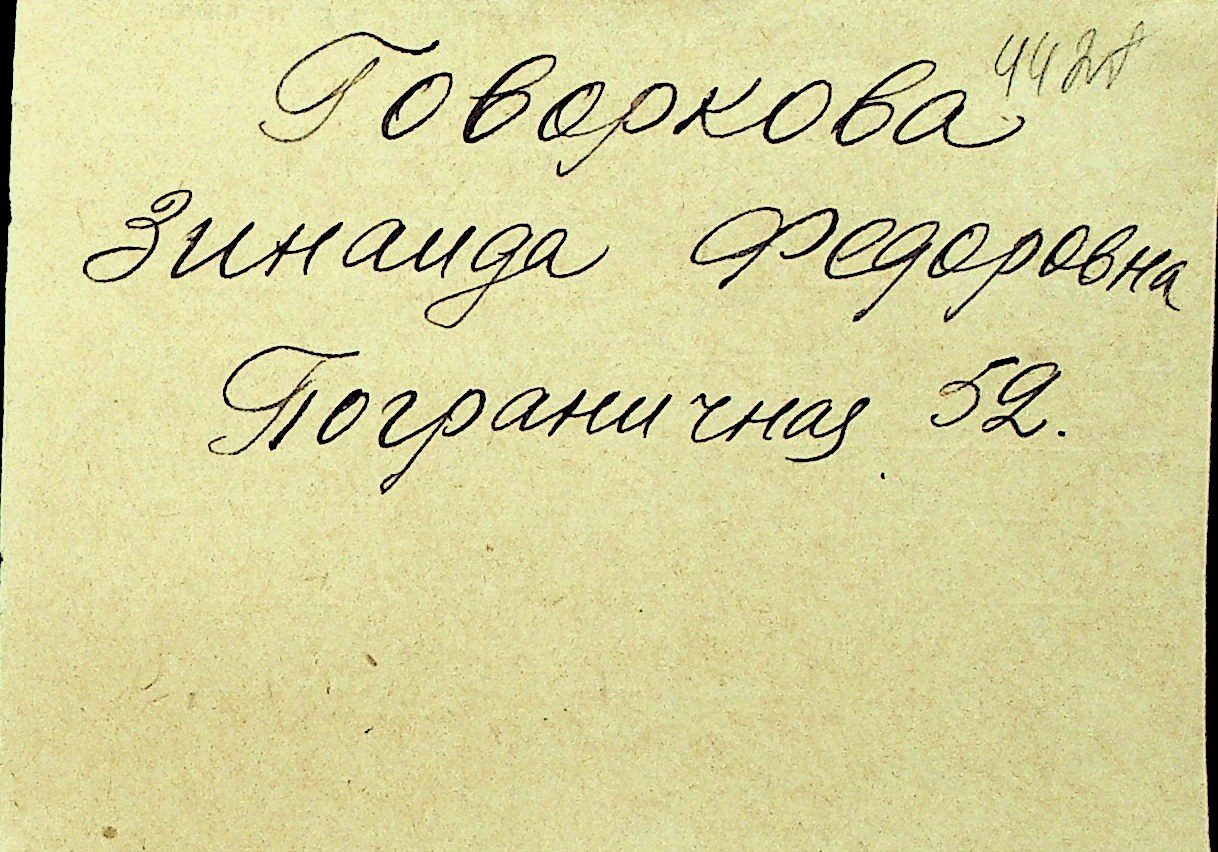 Говоркова
Зинаида Федоровна
Пограничная 52.